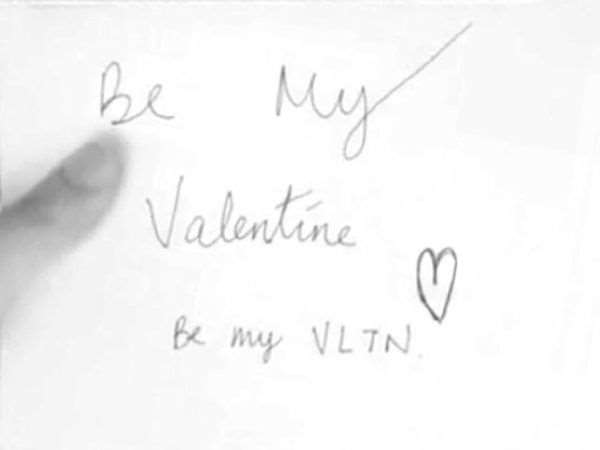 Be My
Valentine
Be my VLTN.